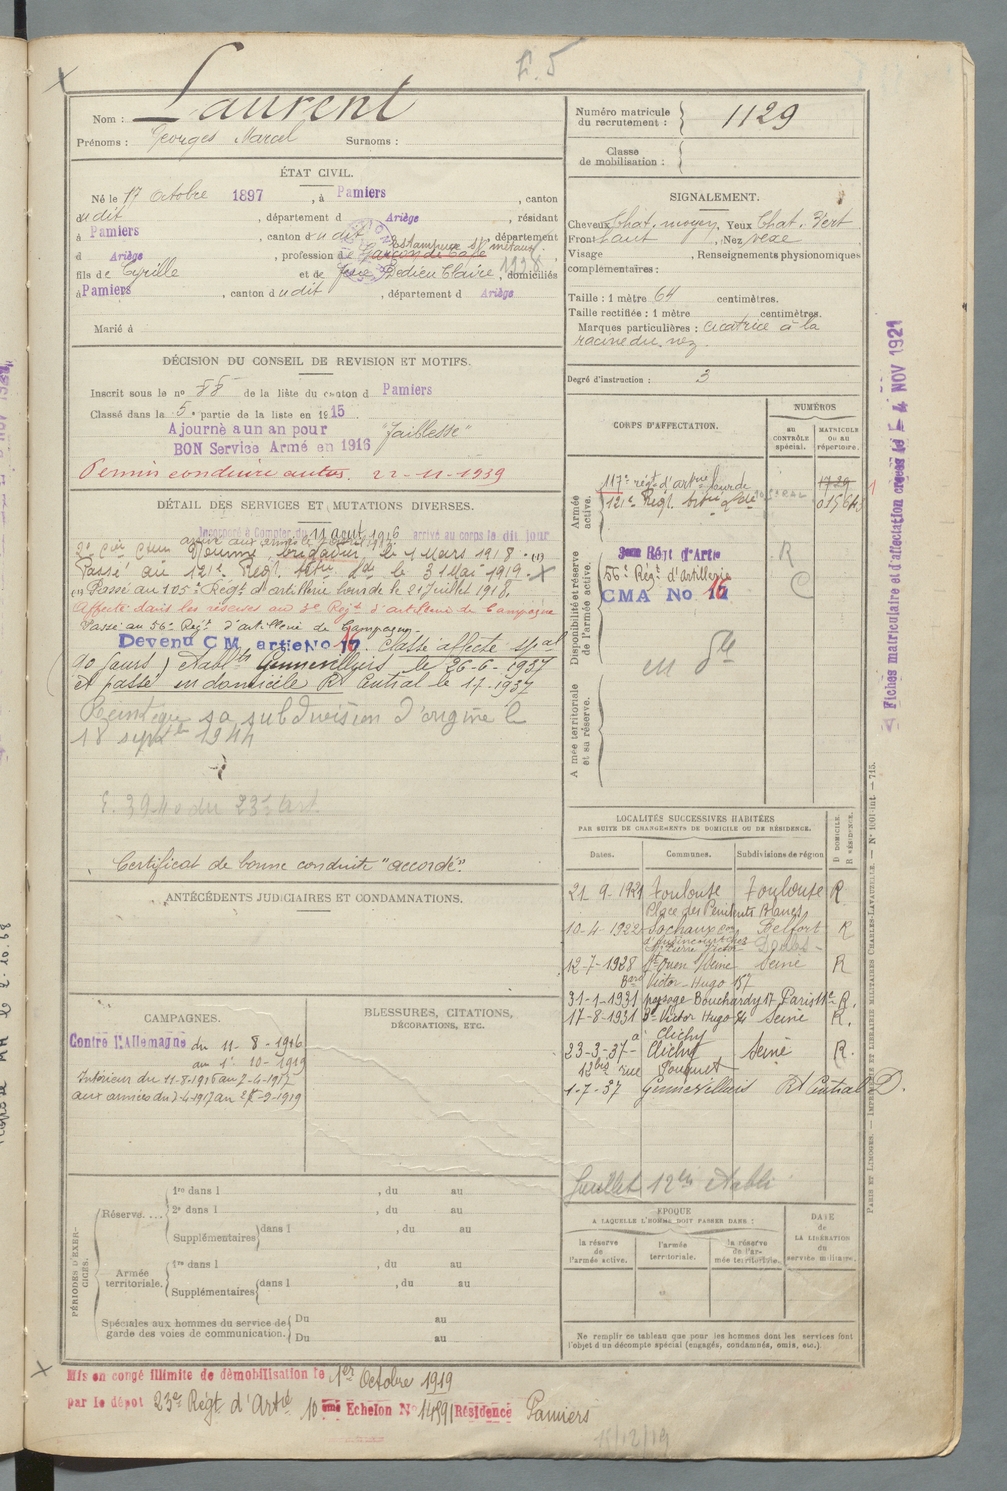 Nom : Laurent
Prénoms : Georges Marcel Surnoms :
ÉTAT CIVIL.
Né le 17 octobre 1897, à Pamiers, canton
dudit, département d Ariège, résidant
à Pamiers, canton dudit, département
d Ariège, profession de Garçon de Café
Estampeur s/ métaux 1928
fils de Cyrille et de Bedieu Claire, domiciliés
à Pamiers, canton dudit, département d Ariège
Marié à
DÉCISION DU CONSEIL DE REVISION ET MOTIFS.
Inscrit sous le no 88 de la liste du canton d Pamiers
Classé dans la 5e partie de la liste en 1915.
Ajourné a un an pour "faiblesse"
BON Service Armé en 1916
Permis conduire autos. 22-11-1939
DÉTAIL DES SERVICES ET MUTATIONS DIVERSES.
Incorporé à Compter du 11 août 1916 arrivé au corps le dit jour
2e Cier Cteur Nommé brigadier le 1 Mars 1918. (1)
Passé au 121e Régt Artie Lde le 3 Mai 1919. X
(1) Passé au 105e Régt d'artillerie lourde le 21 Juillet 1918.
Affecté dans les réserves au 3e Regt d'artillerie de Campagne
Passé au 56e Regt d'artillerie de Campagne.
Devenu C M artie No 16. Classé affecté spal
(90 jours) Etablts Gennevilliers le 26-6-1937
et passé en domicile Rt Central le 1-7-1937
Réintégré sa subdivision d'origine le
18 septbre 1944
Certificat de bonne conduite "accordé".
ANTÉCÉDENTS JUDICIAIRES ET CONDAMNATIONS.
CAMPAGNES.
Contre l'Allemagne du 11-8-1916
au 1er 10-1919
Intérieur du 11-8-1916 au 7-4-1917
aux armées du 7-4-1917 au
BLESSURES, CITATIONS,
DÉCORATIONS, ETC.
PÉRIODES D'EXERCICES.
Réserve....
1re dans l , du au
2e dans l , du au
Supplémentaires dans l , du au
Armée territoriale.
1re dans l , du au
Supplémentaires dans l , du au
Spéciales aux hommes du service de garde des voies de communication.
Du au
Du au
Mis en congé illimité de démobilisation le 1er Octobre 1919
par le dépôt 23e Régt d'Artie 10 ème Echelon No Résidence Pamiers
15/12/19
Numéro matricule
du recrutement : 1129
Classe
de mobilisation :
SIGNALEMENT.
Cheveux Chat. moyen, Yeux Chat. Vert
Front haut, Nez vexe
Visage , Renseignements physionomiques
complémentaires :
Taille : 1 mètre 64 centimètres.
Taille rectifiée : 1 mètre centimètres.
Marques particulières : cicatrice à la
racine du nez.
Degré d'instruction : 3
CORPS D'AFFECTATION.
NUMÉROS
au CONTRÔLE spécial.
MATRICULE ou au répertoire.
Armée active.
117e régt d'artie lourde 1729
121e Régt Artie Lde
Disponibilité et réserve de l'armée active.
3ème Régt d'Artie R
56e Régt d'artillerie C
CMA No 16
Armée territoriale et sa réserve.
LOCALITÉS SUCCESSIVES HABITÉES
PAR SUITE DE CHANGEMENTS DE DOMICILE OU DE RÉSIDENCE.
Dates. Communes. Subdivisions de région
D DOMICILE.
R RÉSIDENCE.
21-9-1921 Toulouse Toulouse R
Place des Pénitents Blancs
10-4-1922 Sochaux Belfort R
Doubs
12-7-1928 St Ouen Seine Seine R
Bard Victor-Hugo 157
31-1-1931 passage Bouchardy 17 Paris 11e R.
17-8-1931 Bd Victor Hugo 84 Seine R.
à Clichy
23-3-37 Clichy Seine R.
12bis rue Fouquet
1-7-37 Gennevilliers Rt Central D.
EPOQUE
A LAQUELLE L'HOMME DOIT PASSER DANS :
la réserve de l'armée active.
l'armée territoriale.
la réserve de l'armée territoriale.
DATE de LA LIBÉRATION du service militaire.
Ne remplir ce tableau que pour les hommes dont les services font
l'objet d'un décompte spécial (engagés, condamnés, omis, etc.).
Fiches matriculaire et d'affectation créées le 4 NOV 1921
PARIS ET LIMOGES. — IMPRIMERIE ET LIBRAIRIE MILITAIRES CHARLES-LAVAUZELLE. — No 1001-int. — 715.